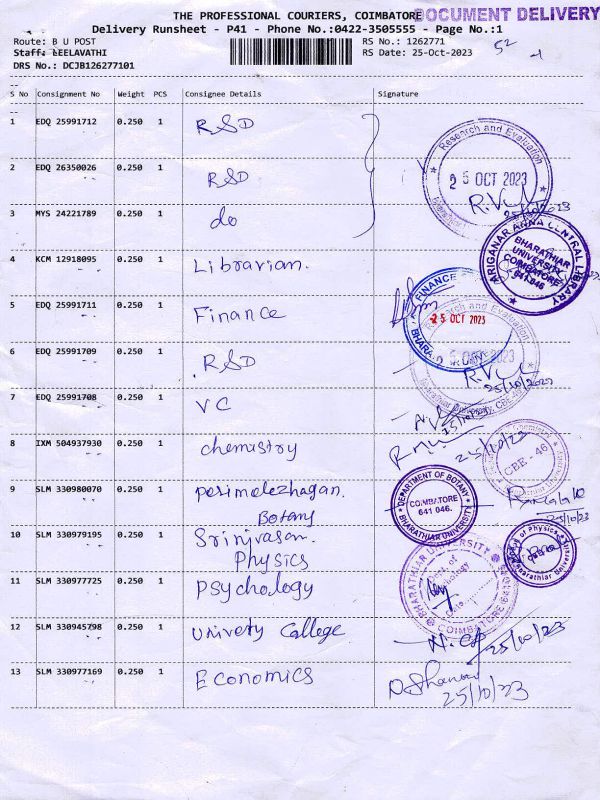 THE PROFESSIONAL COURIERS, COIMBATORE
DOCUMENT DELIVERY
Delivery Runsheet - P41 - Phone No.:0422-3505555 - Page No.:1
Route: B U POST
RS No.: 1262771
52
Staff: LEELAVATHI
RS Date: 25-Oct-2023
DRS No.: DCJB126277101
S No Consignment No Weight PCS Consignee Details Signature
1 EDQ 25991712 0.250 1 RSD
Research and Evaluation
2 EDQ 26350026 0.250 1 RSD
25 OCT 2023
25/10/2023
3 MYS 24221789 0.250 1 do
ARIGANAR ANNA CENTRAL LIBRARY
BHARATHIAR
UNIVERSITY
COIMBATORE
641 046
4 KCM 12918095 0.250 1 Librarian.
5 EDQ 25991711 0.250 1 Finance
FINANCE
25 OCT 2023
Research and Evaluation
6 EDQ 25991709 0.250 1 RSD
OCT 2023
25/10/2023
7 EDQ 25991708 0.250 1 VC
25/10/23
8 IXM 504937930 0.250 1 chemistry
25/10/23
CBE - 46
9 SLM 330980070 0.250 1 perimelezhagan.
Botany
DEPARTMENT OF BOTANY
COIMBATORE
641 046.
BHARATHIAR UNIVERSITY
25/10/23
10 SLM 330979195 0.250 1 Srinivasan.
Physics
of Physics
Bharathiar University
11 SLM 330977725 0.250 1 Psychology
BHARATHIAR UNIVERSITY
COIMBATORE
12 SLM 330945798 0.250 1 Univety College
25/10/23
13 SLM 330977169 0.250 1 Economics
25/10/23